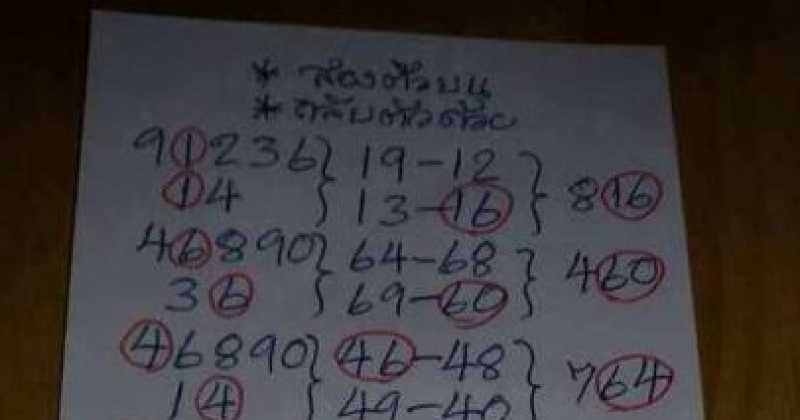 * สองตัวบน
* กลับตัวด้วย
91236 } 19-12 } 816
14 } 13-16 }
46890 } 64-68 } 460
36 } 69-60 }
46890 } 46-48 } 764
14 } 49-40 }